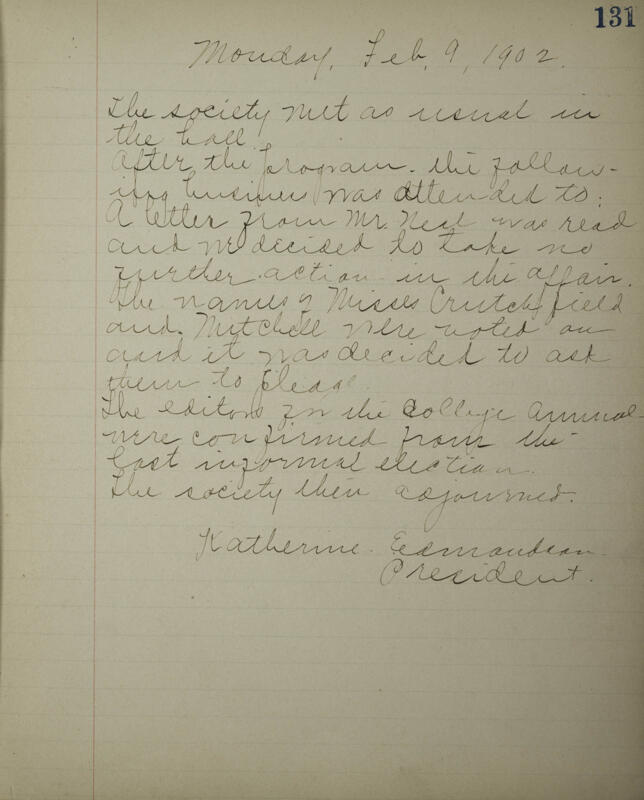 131
Monday, Feb, 9, 1902.
The society met as usual in
the hall.
After the program. the follow-
ing business was attended to:
A letter from Mr. Neal was read
and we decided to take no
further action in the affair.
The names of Misses Crutchfield
and Mitchell were voted on
and it was decided to ask
them to pledge.
The editors for the College Annual
were confirmed from the
last informal election.
The society then adjourned.
Katherine Edmondson
President.